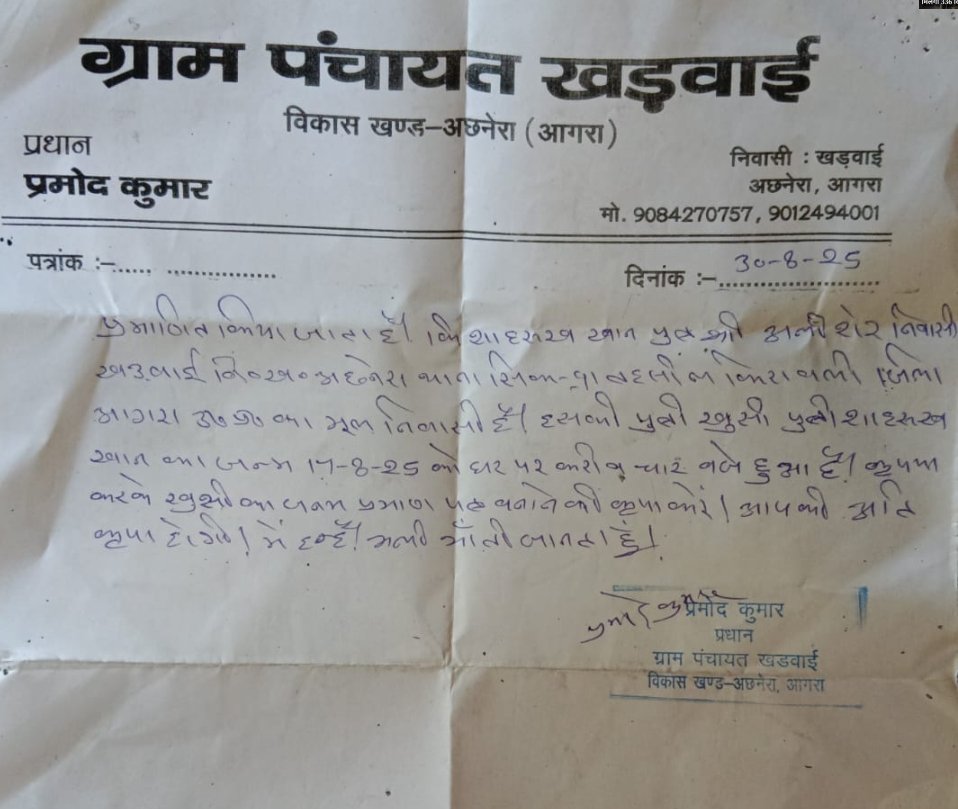 ग्राम पंचायत खड़वाई
विकास खण्ड–अछनेरा (आगरा)
प्रधान
प्रमोद कुमार
निवासी : खड़वाई
अछनेरा, आगरा
मो. 9084270757, 9012494001
पत्रांक :–..... ................
दिनांक :–30-8-25
प्रमाणित किया जाता है। कि शाहरुख खान पुत्र श्री अली शेर निवासी
खड़वाई वि०ख० अछनेरा थाना तहसील किरावली जिला
आगरा उ०प्र० का मूल निवासी है। इसकी पुत्री खुसी पुत्री शाहरुख
खान का जन्म 17-8-25 को घर पर करीब चार बजे हुआ है। कृपया
करके खुसी का जन्म प्रमाण पत्र बनाने की कृपा करें। आपकी अति
कृपा होगी। में इन्हें भली भाँती जानता हूं।
प्रमोद कुमार
प्रमोद कुमार
प्रधान
ग्राम पंचायत खडवाई
विकास खण्ड–अछनेरा, आगरा